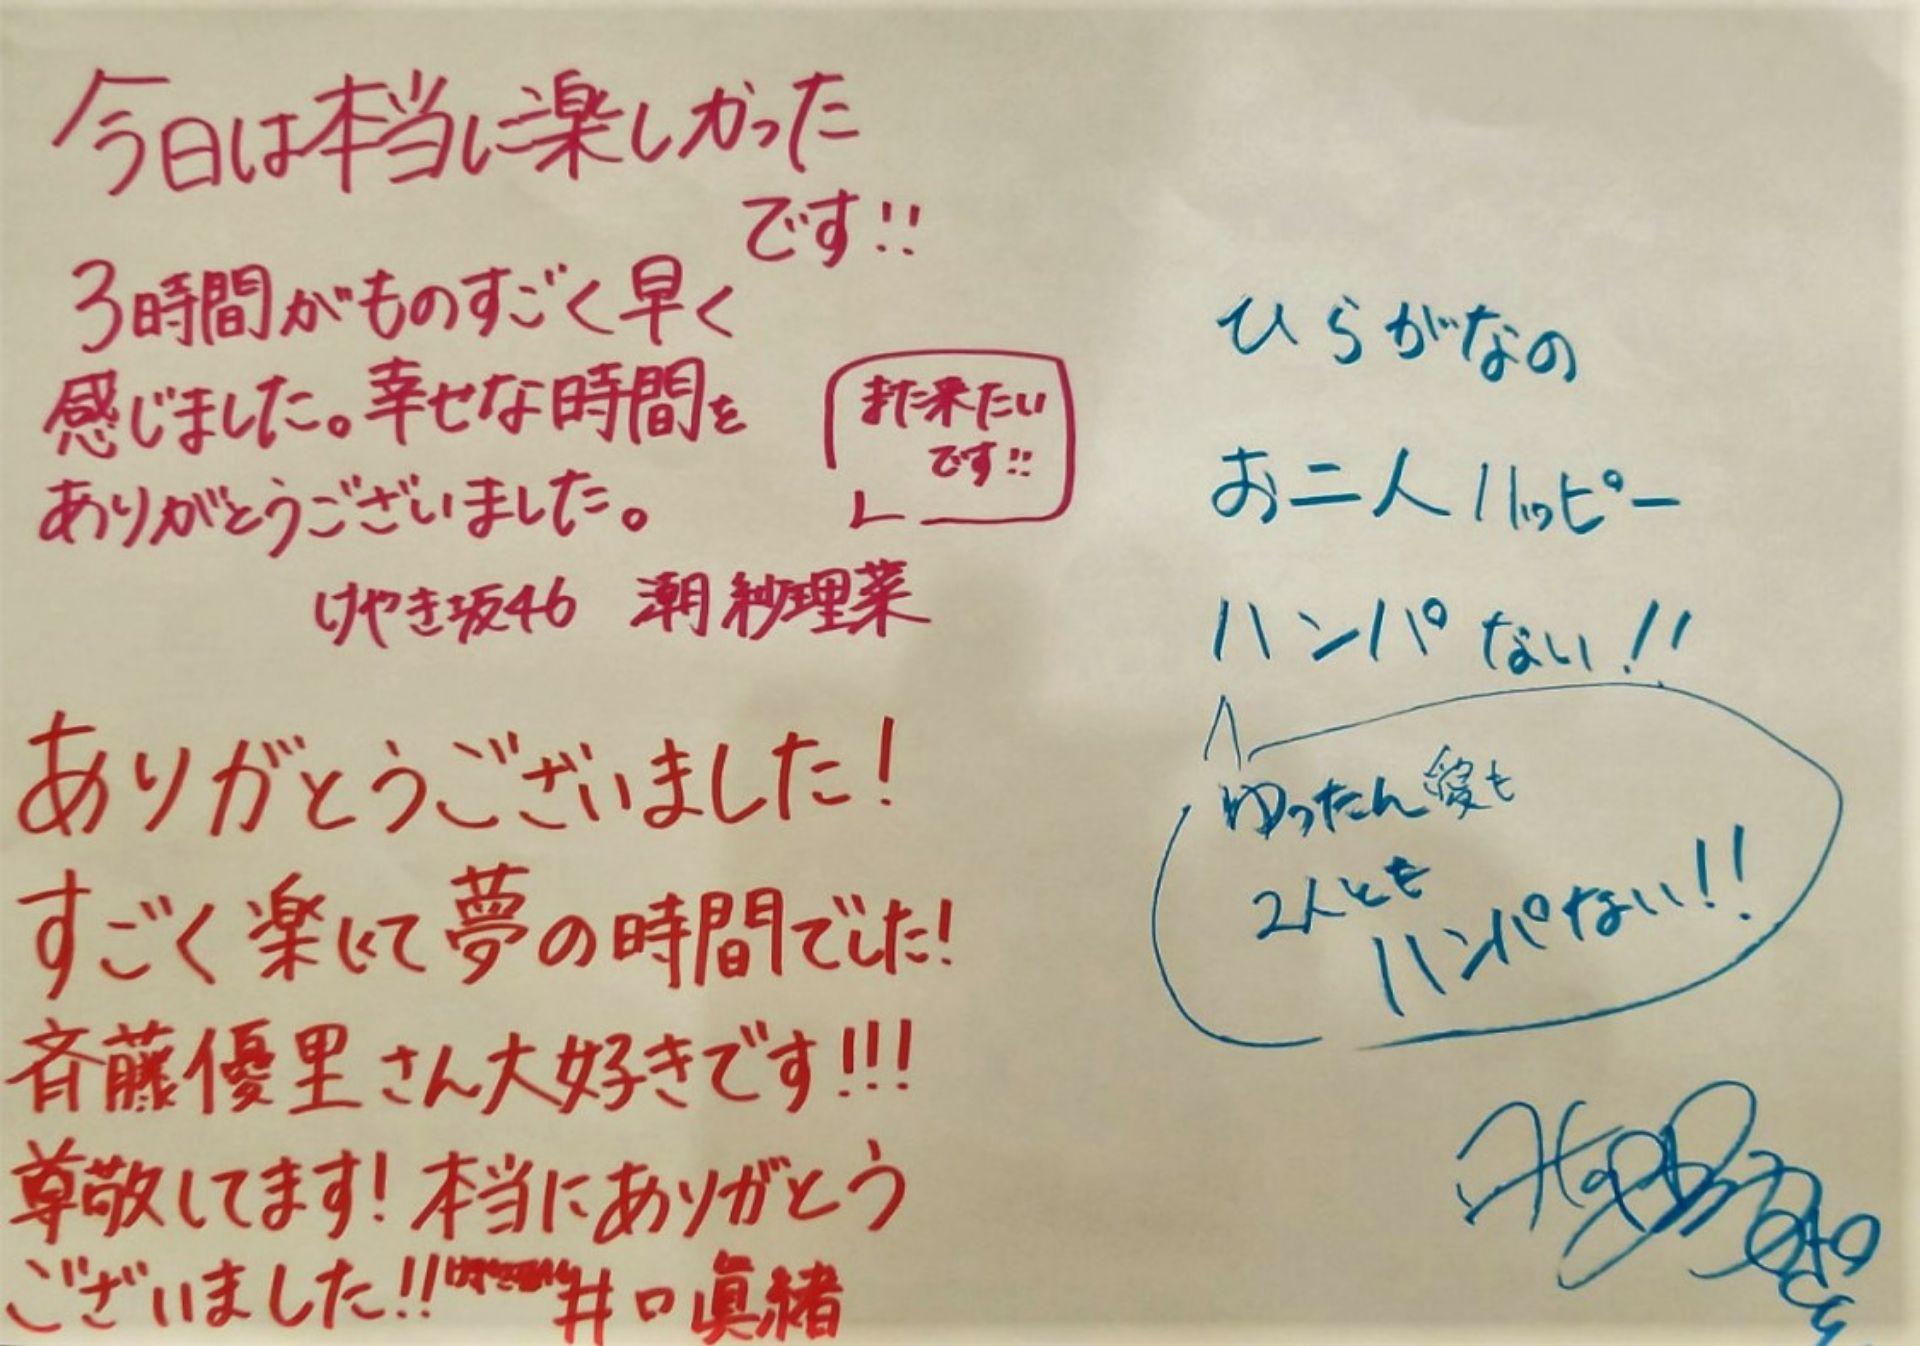 今日は本当に楽しかった
です!!
3時間がものすごく早く
感じました。幸せな時間を
ありがとうございました。
また来たい
です!!
けやき坂46 潮紗理菜
ありがとうございました!
すごく楽しくて夢の時間でした!
斉藤優里さん大好きです!!!
尊敬してます!本当にありがとう
ございました!!
井口眞緒
ひらがなの
お二人ハッピー
ハンパない!!
ゆったん愛も
2人とも
ハンパない!!